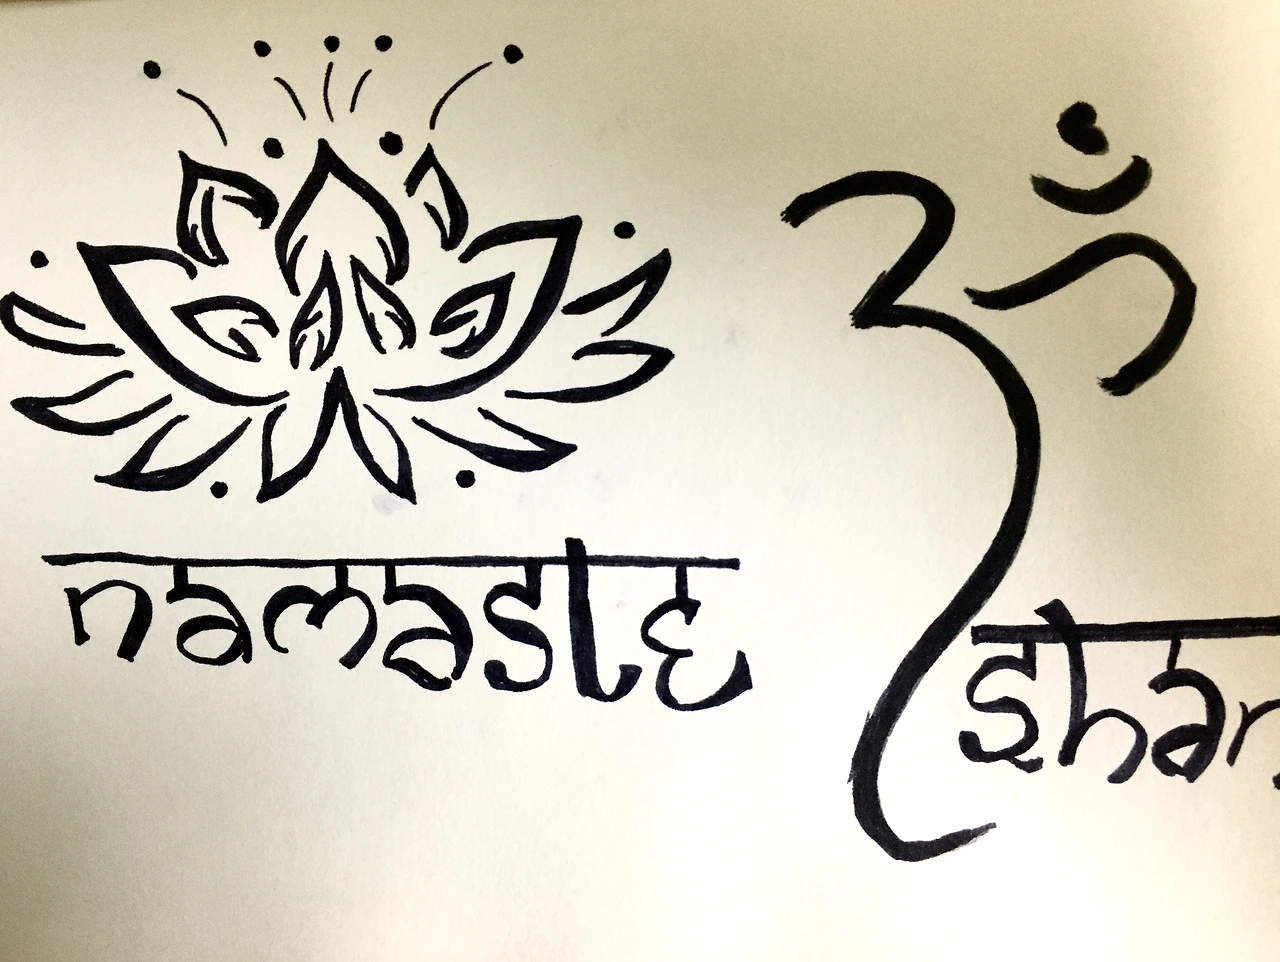 namaste
ॐ
shan